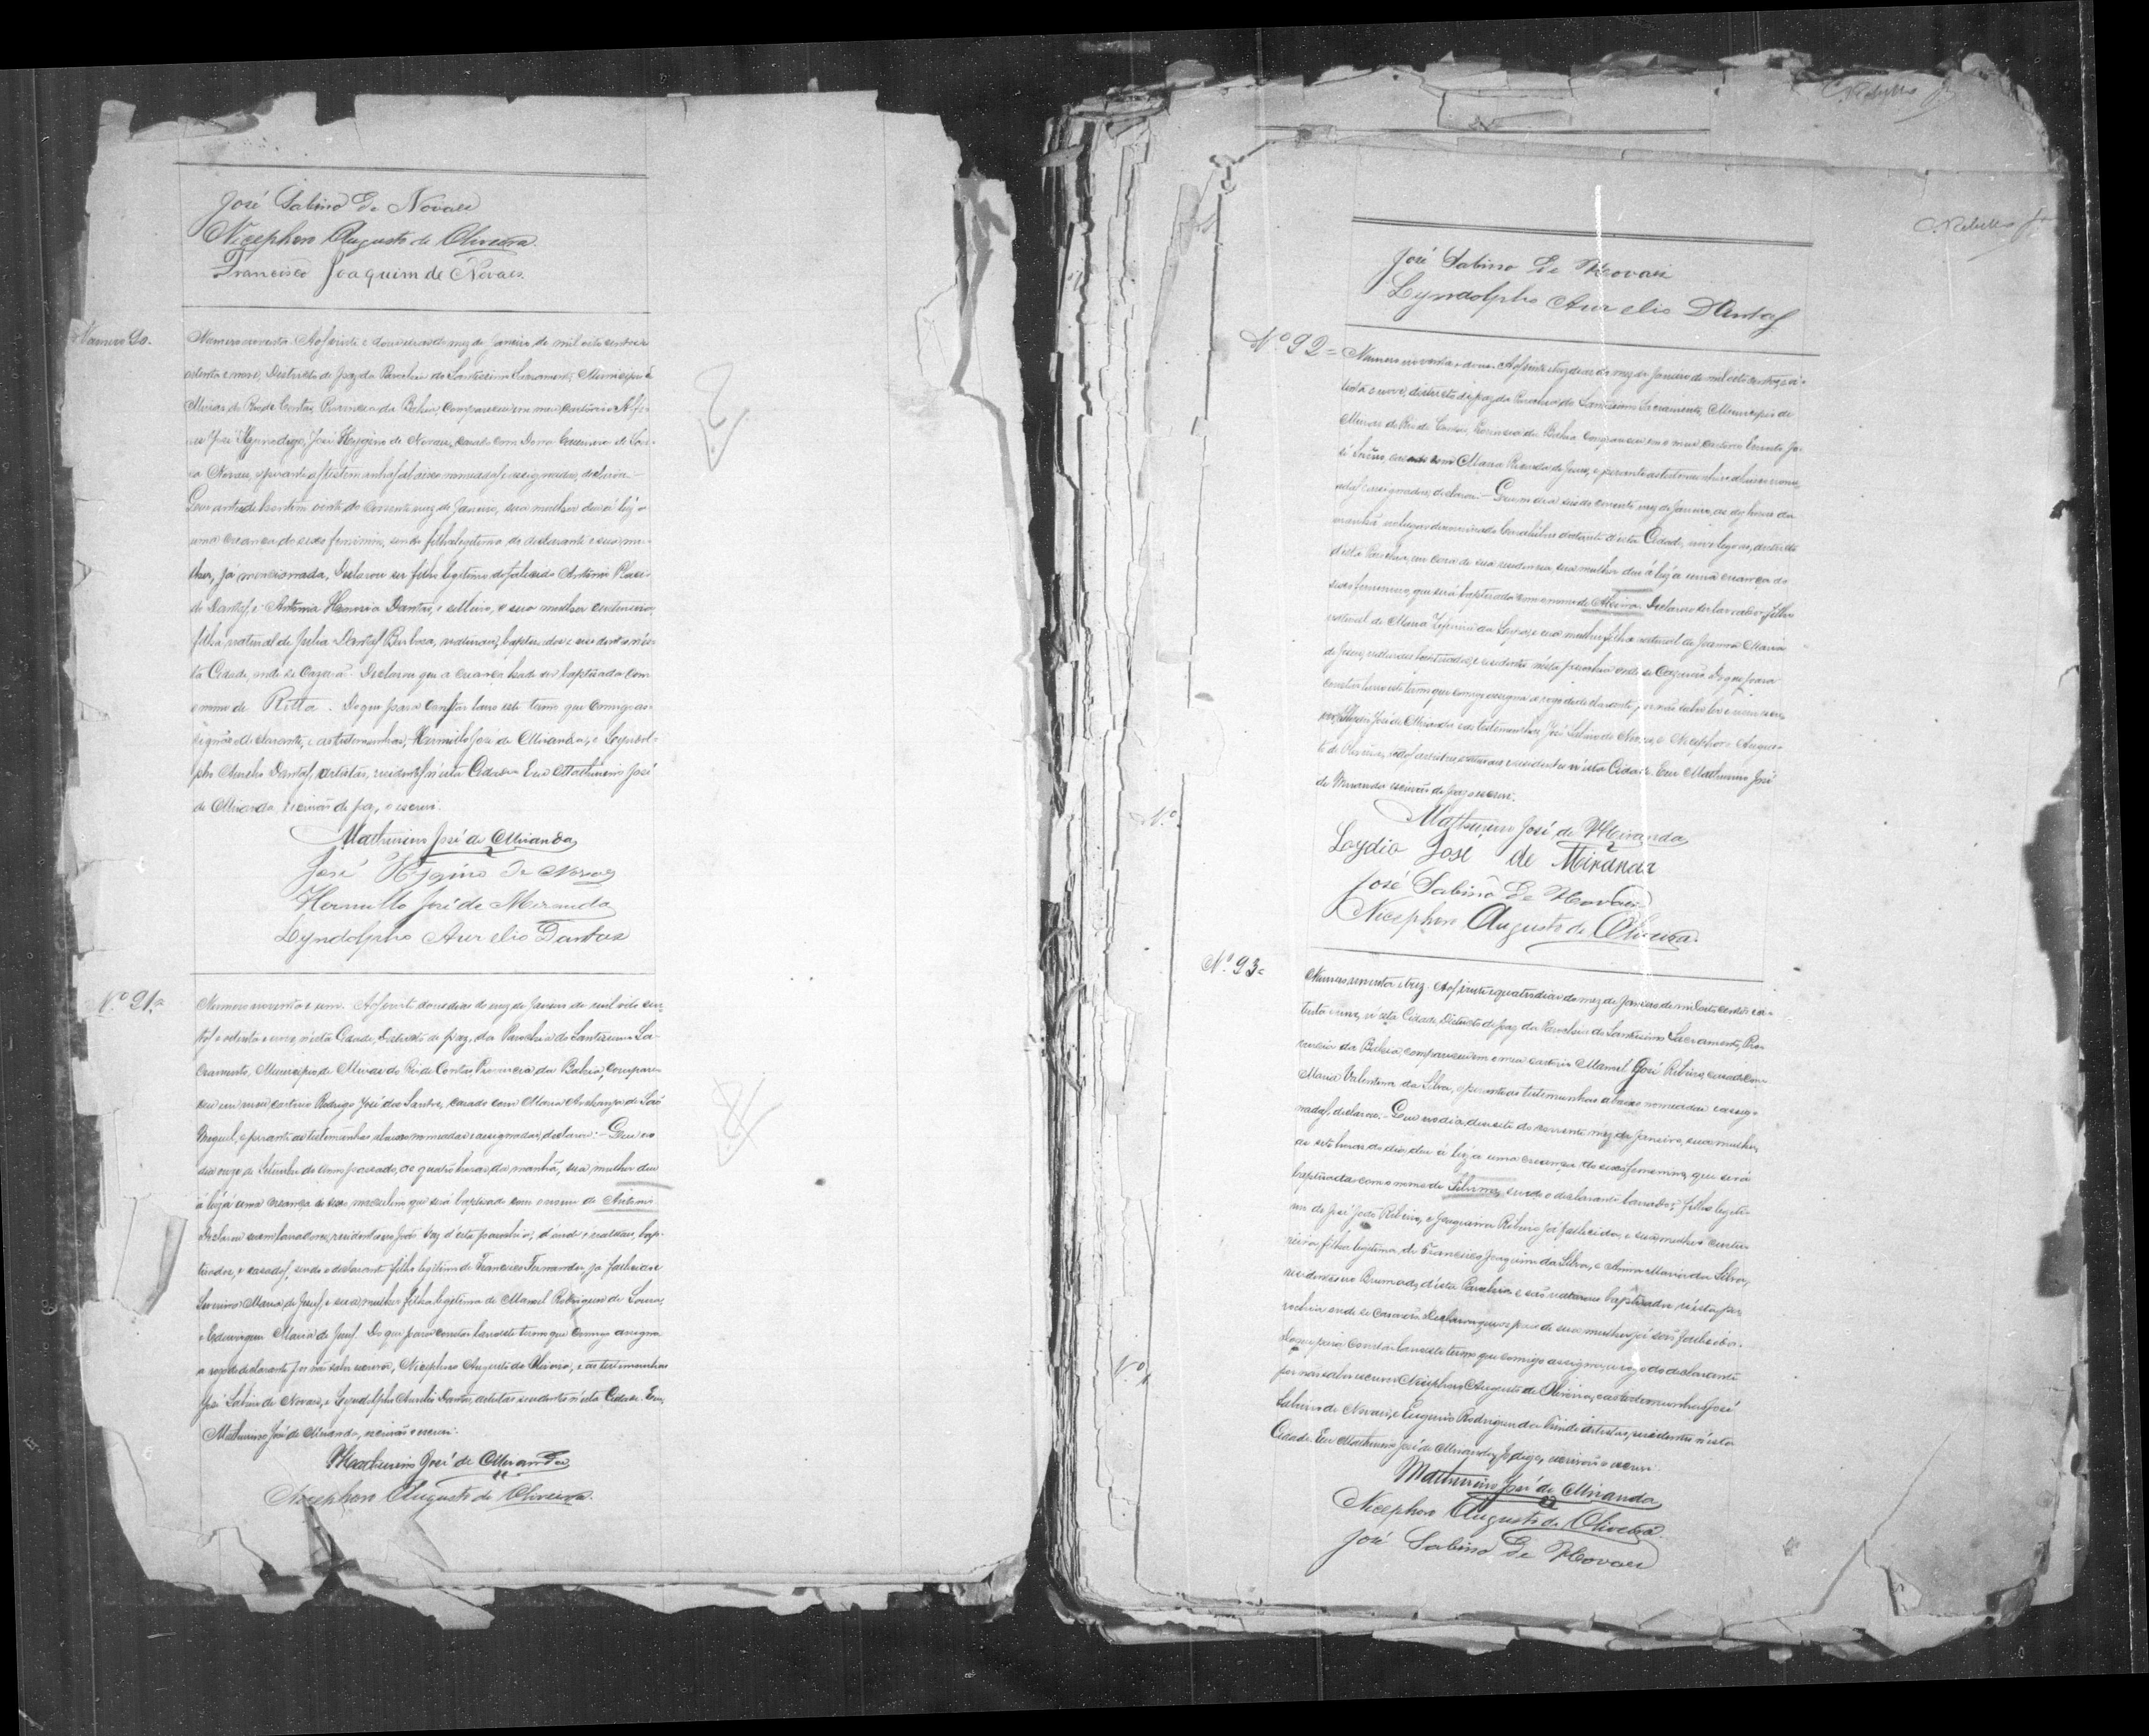 José Sabino de Novaes
Nicephoro Augusto de Oliveira.
Francisco Joaquim de Novaes.
Numero 90.
Numero noventa. Aos vinte e dous dias do mez de Janeiro de mil oito centos e
oitenta e nove, Districto de paz da Parochia do Santissimo Sacramento, Municipio de
Minas do Rio de Contas, Provincia da Bahia, compareceu em meu cartorio
José Hygino de Novaes, casado com Dona de
Novaes, e perante as testemunhas abaixo nomeadas e assignadas, declarou:
Que ante de hontem vinte do corrente mez de Janeiro, sua mulher deu á luz a
uma creança do sexo feminino, sendo filha legitima do declarante e sua mu-
lher, já mencionada, Declarou ser filho legitimo do falecido Antonio
Dantas, e Antonia Dantas, e sua mulher
filha natural de Julia Dantas Barbosa, naturaes, baptisados e residentes nes-
ta Cidade, onde se cazarão. Declarou que a creança hade ser baptisada com
o nome de Ritta. Do que para constar lavro este termo que comigo as-
signão o declarante, e as testemunhas, Hermillo José de Miranda, e Lyndol-
pho Aurelio Dantas, artistas, residentes n'esta Cidade. Eu Mathurino José
de Miranda, escrivão de paz, o escrevi.
Mathurino José de Miranda
José Hygino de Novaes
Hermillo José de Miranda
Lyndolpho Aurelio Dantas
Nº 91=
Numero noventa e um. Aos vinte dous dias do mez de Janeiro de mil oito cen-
tos e oitenta e nove, n'esta Cidade, Districto de paz, da Parochia do Santissimo Sa-
cramento, Municipio de Minas do Rio de Contas, Provincia da Bahia, compare-
ceu em meu cartorio Rodrigo José dos Santos, casado com Maria Archanja de São
Miguel, e perante as testemunhas abaixo nomeadas e assignadas, declarou: Que no
dia onze de Setembro do anno passado, as quatro horas da manhã, sua mulher deu
á luz á uma creança do sexo masculino que será baptisado com o nome de Antonio
Declarou serem lavradores, residentes n'esta parochia, d'onde são naturaes, bap-
tisados, e casados, sendo o declarante filho legitimo de Francisco Fernandes, já fallecido e
Maria de Jesus, e sua mulher filha legitima de Manoel Rodrigues de Souza,
e Maria de Jesus. Do que para constar lavro este termo que comigo assigna
a rogo do declarante por não saber escrever, Nicephoro Augusto de Oliveira, e as testemunhas
José Sabino de Novaes, e Lyndolpho Aurelio Dantas, artistas residentes n'esta Cidade. Eu,
Mathurino José de Miranda, escrivão o escrevi.
Mathurino José de Miranda
Nicephoro Augusto de Oliveira.
José Sabino de Novaes
Lyndolpho Aurelio Dantas
Nº 92=
Numero noventa e dous. Aos vinte e tres dias do mez de Janeiro de mil oito centos e oi-
tenta e nove, districto de paz da Parochia do Santissimo Sacramento, Municipio de
Minas do Rio de Contas, Provincia da Bahia compareceu em o meu cartorio
casado com Maria de Jesus, e perante as testemunhas abaixo nome-
adas e assignadas, declarou: Que no dia do corrente mez de Janeiro, as dez horas da
manhã no lugar denominado distante d'esta Cidade, districto
d'esta Parochia, em casa de sua residencia, sua mulher deu á luz a uma creança do
sexo femenino, que será baptisada com o nome de Declarou ser lavrador, filho
natural de Maria da e sua mulher filha natural de Joanna Maria
de Jesus, naturaes baptisados, e residentes nesta parochia onde se cazarão. Do que para
constar lavro este termo que comigo assigna a rogo do declarante, por não saber ler e nem escre-
ver, José de Miranda e as testemunhas, José Sabino de Novaes, e Nicephoro Augus-
to de Oliveira, todos artistas, naturaes e residentes n'esta Cidade. Eu Mathurino José
de Miranda escrivão de paz o escrevi.
Mathurino José de Miranda
Lydio José de Miranda
José Sabino de Novaes
Nicephoro Augusto de Oliveira.
Nº 93=
Numero noventa e trez. Aos vinte e quatro dias do mez de Janeiro de mil oito centos e oi-
tenta e nove, n'esta Cidade, Districto de paz da Parochia do Santissimo Sacramento, Pro-
vincia da Bahia compareceu em o meu cartorio Manoel José Ribeiro, casado com
Maria Valentina da Silva, e perante as testemunhas abaixo nomeadas e assig-
nadas, declarou. Que no dia dezesete do corrente mez de Janeiro, sua mulher,
as sete horas do dia, deu á luz a uma creança do sexo femenino, que será
baptisada com o nome de sendo o declarante lavrador, filho legiti-
mo de José Ribeiro, e Joaquina Ribeiro já fallecida, e sua mulher
filha legitima de Francisco Joaquim da Silva, e Anna Maria da Silva,
residentes no Brumado, d'esta Parochia e são naturaes baptisados n'esta pa-
rochia onde se casarão. Declarou que os pais de sua mulher já são fallecidos.
Do que para constar lavro este termo que comigo assigna, a rogo do declarante
por não saber escrever Nicephoro Augusto de Oliveira, e as testemunhas José
Sabino de Novaes, e Eugenio Rodrigues da artistas, residentes n'esta
Cidade. Eu Mathurino José de Miranda, escrivão o escrevi.
Mathurino José de Miranda
Nicephoro Augusto de Oliveira.
José Sabino de Novaes
Nº
Nº